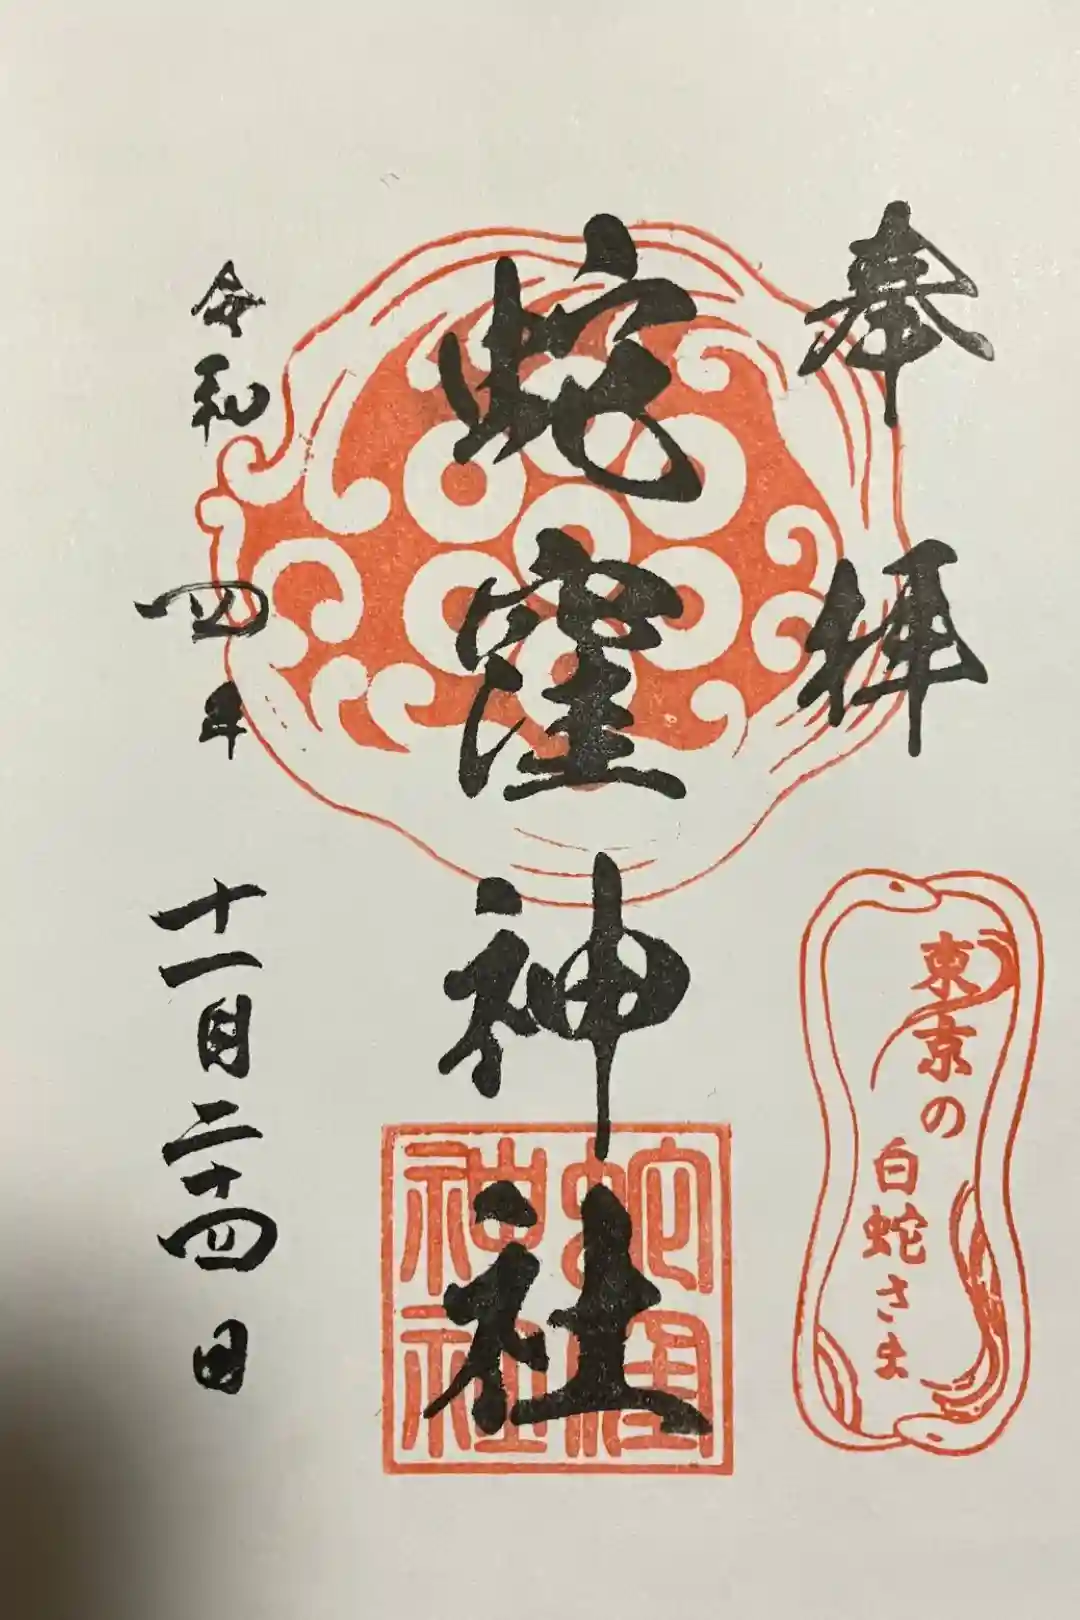 奉拝
東京の
白蛇さま
蛇窪神社
蛇窪
神社
令和四年十一月二十四日